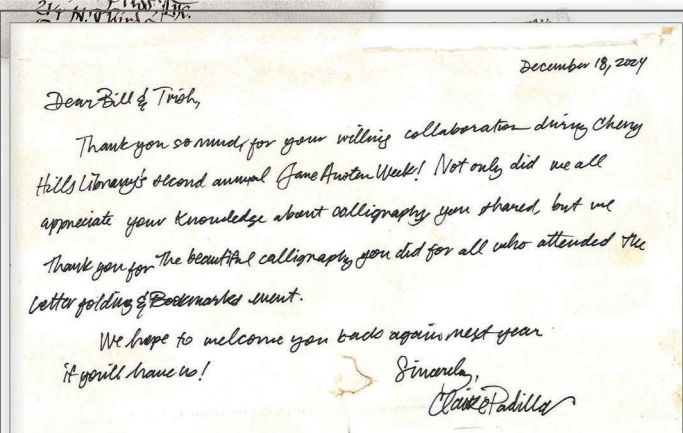 December 18, 2024
Dear Bill & Trish,
Thank you so much, for your willing collaboration during Cherry
Hills Library's second annual Jane Austen Week! Not only did we all
appreciate your knowledge about calligraphy you shared, but we
Thank you for the beautiful calligraphy you did for all who attended the
Letter folding & Bookmarks event.
We hope to welcome you back again next year
if you'll have us!
Sincerely,
Claire Padilla